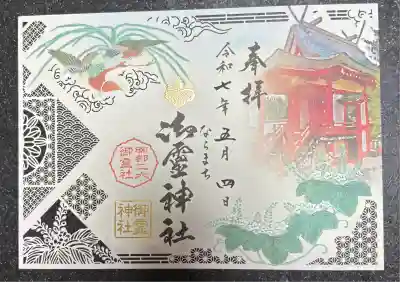 奉拝
令和七年五月四日
ならまち
御霊神社
御霊社
御霊
神社